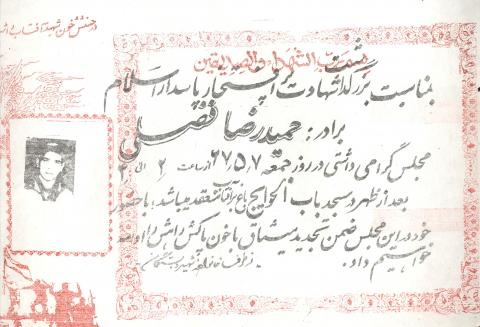 درخشش خون شهید آفتاب
بسم رب الشهداء والصدیقین
بمناسبت بزرگداشت شهادت پر افتخار پاسدار اسلام
برادر: حمیدرضا فضلی
مجلس گرامی داشتی در روز جمعه ۶۷،۵،۷ از ساعت ۲ الی
بعد از ظهر در مسجد باب الحوائج منعقد میباشد، با حضور
خود در این مجلس ضمن تجدید میثاق با خون پاکش راهش را ادامه
خواهیم داد.
از طرف خانواده شهید و بستگان